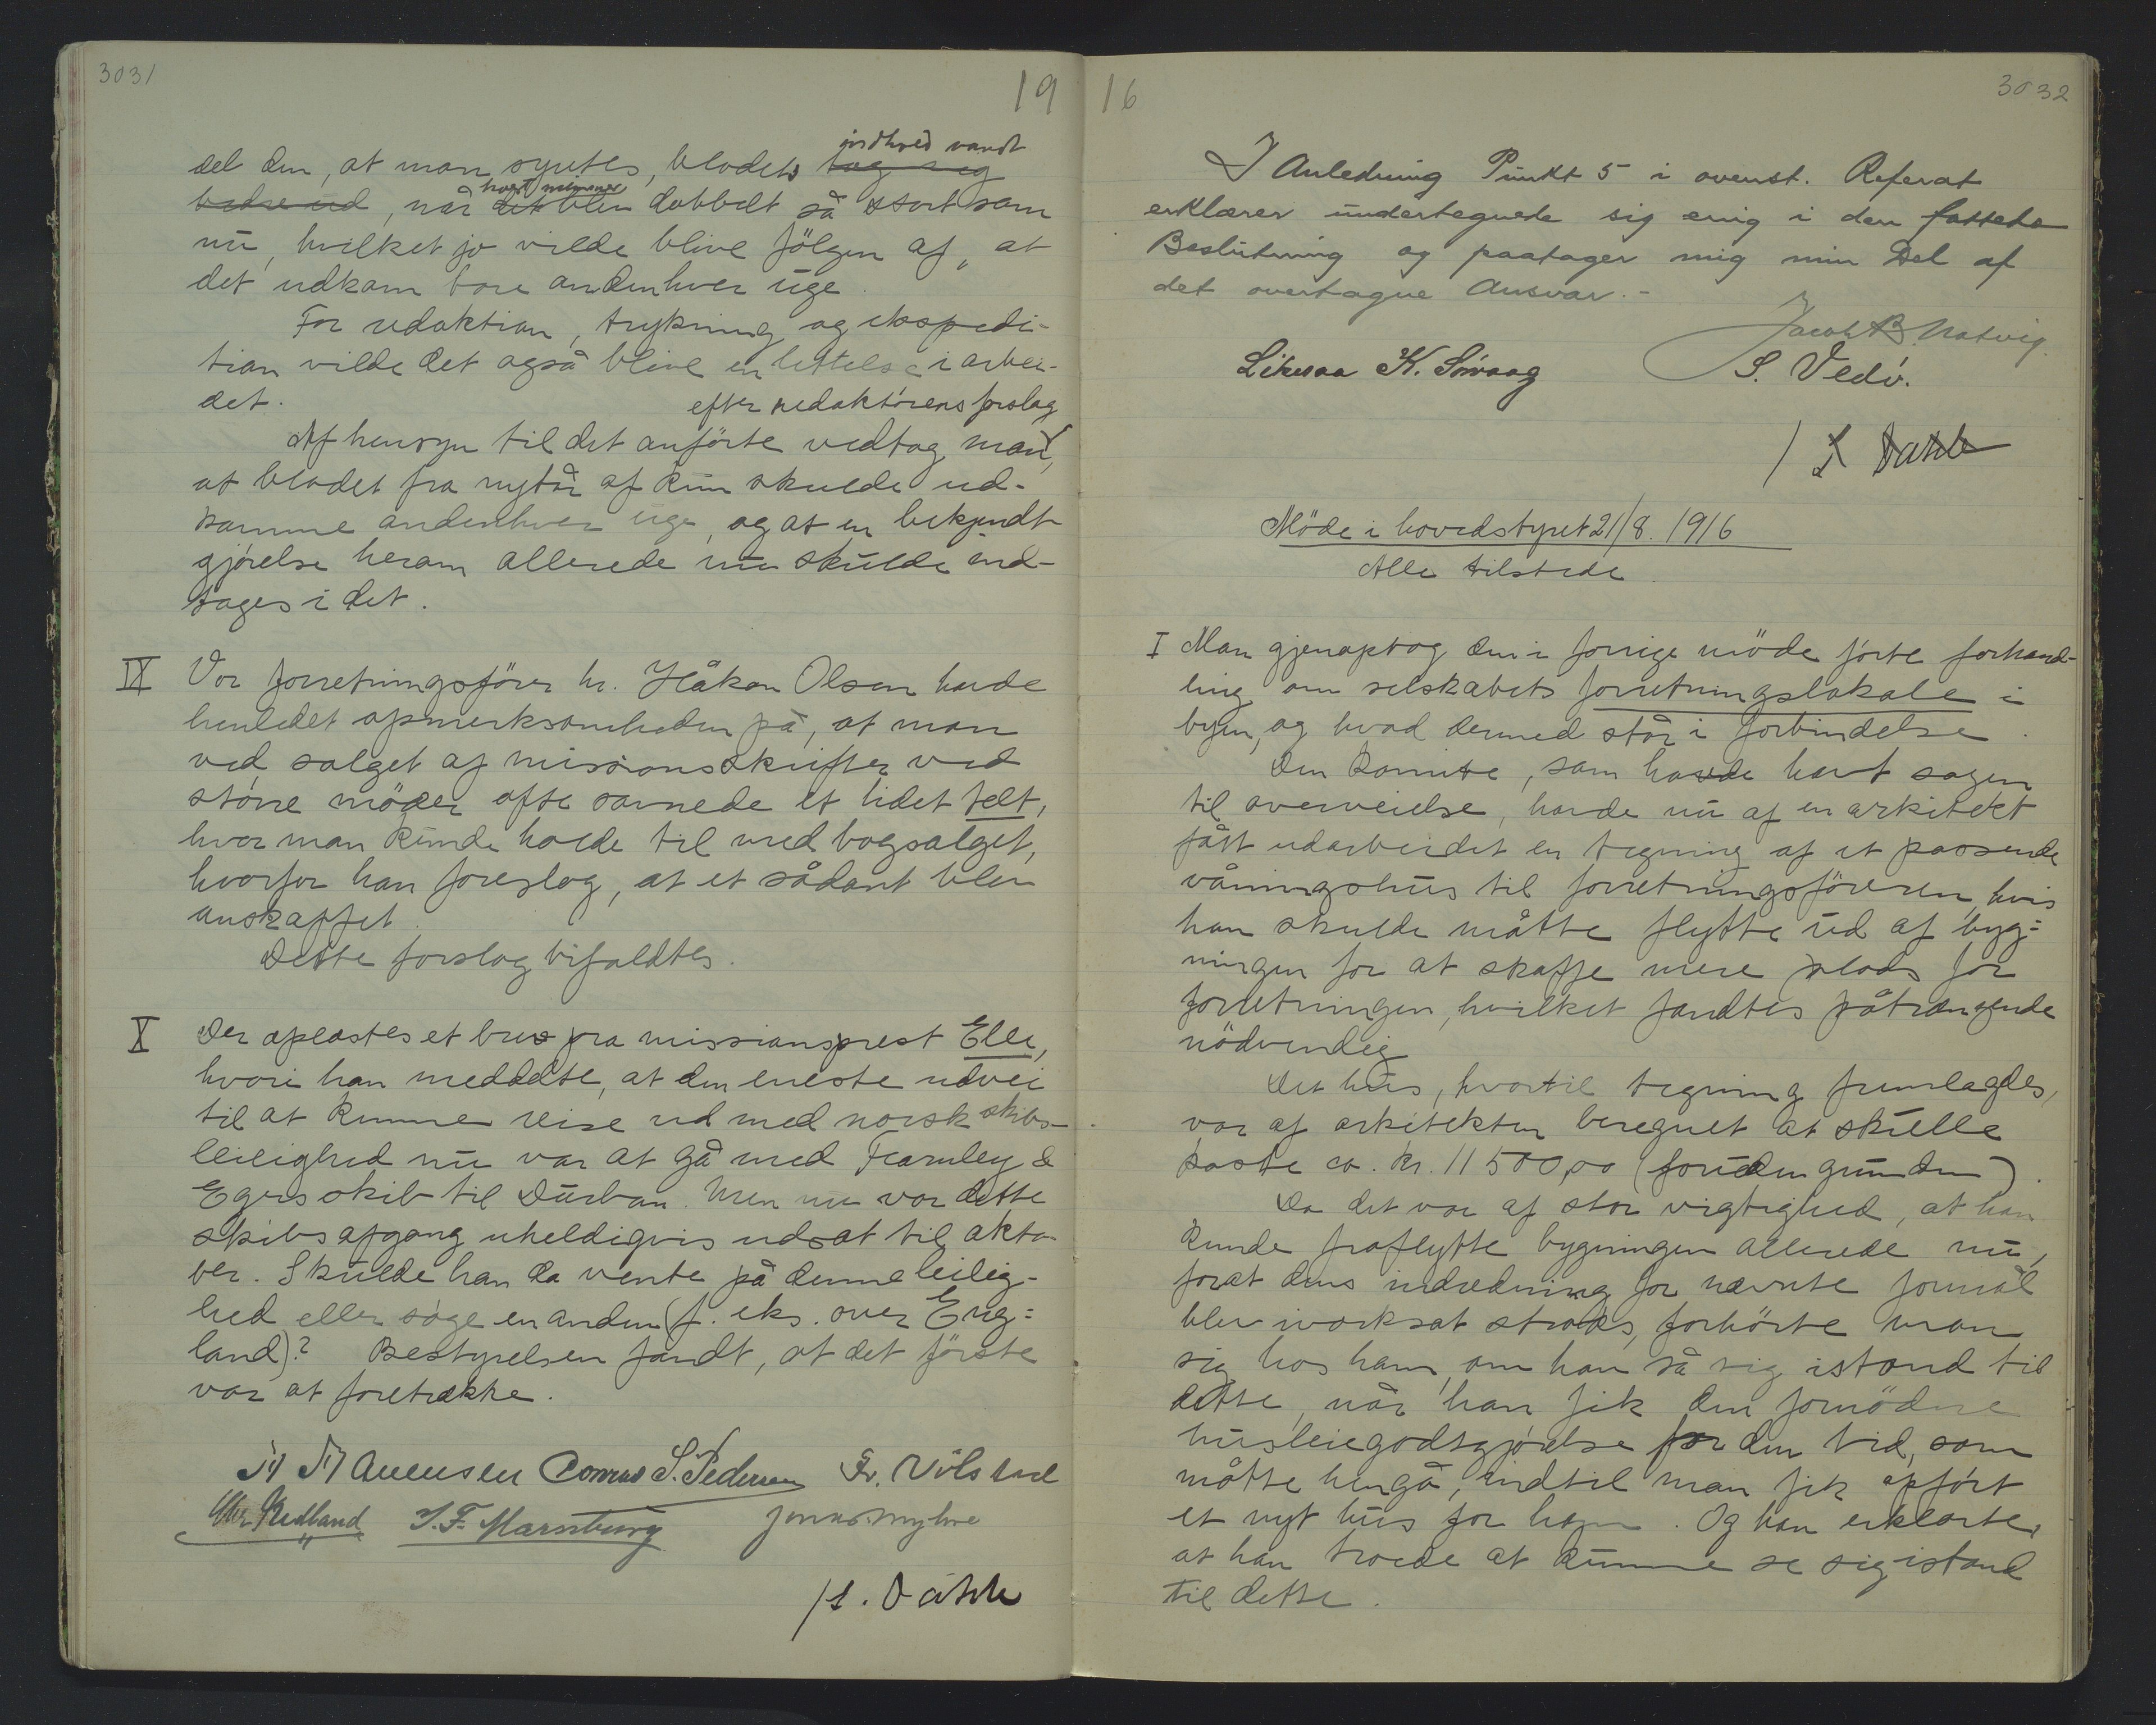 3031
19
del den, at man syntes, bladets indhold vandt
tog sig
bedre ud, når hvert nummer det blev dobbelt så stort som
nu, hvilket jo vilde blive følgen af, at
det udkom bare andenhver uge.
For redaktion, trykning og ekspedi-
tion vilde det også blive en lettelse i arbei-
det.
efter redaktörens forslag
Af hensyn til det anförte vedtog man,
at bladet fra nytår af kun skulde ud-
komme andenhver uge, og at en bekjendt-
gjörelse herom allerede nu skulde ind-
tages i det.
IX Vor forretningsförer hr. Håkon Olsen havde
henledet opmerksomheden på, at man
ved salget af missionsskrifter ved
större möder ofte savnede et lidet telt,
hvor man kunde holde til med bogsalget,
hvorfor han foreslog, at et sådant blev
anskaffet.
Dette forslag bifaldtes.
X Der oplæstes et brev fra missionsprest Elle,
hvori han meddelte, at den eneste udvei
til at kunne reise ud med norsk skibs-
leilighed nu var at gå med Fearnley &
Egers skib til Durban. Men nu var dette
skibs afgang uheldigvis udsat til okto-
ber. Skulde han da vente på denne leilig-
hed eller söge en anden (f. eks. over Eng-
land)? Bestyrelsen fandt, at det förste
var at foretrække.
Amensen Conrad S. Pedersen Fr. Völstad
Chr. Redland J. F. Marnburg Jonas Myhre
L. Dahle
16
3032
I Anledning Punkt 5 i ovenst. Referat
erklærer undertegnede sig enig i den fattede
Beslutning og paatager mig min Del af
det overtagne Ansvar.-
Jacob B. Natvig.
Likesaa K. Sörvaag S. Vedö.
L Dahle
Möde i hovedstyret 21/8. 1916
Alle tilstede.
I Man gjenoptog den i forrige möde förte forhand-
ling om selskabets forretningslokale i
byen, og hvad dermed står i forbindelse.
Den komite, som havde havt sagen
til overveielse, havde nu af en arkitekt
fått udarbeidet en tegning af et passende
våningshus til forretningsföreren, hvis
han skulde måtte flytte ud af byg-
ningen for at skaffe mere plads for
forretningen, hvilket fandtes påtrængende
nödvendig.
Det hus, hvortil tegning fremlagdes,
var af arkitekten beregnet at skulle
koste ca. kr. 11500,00 (foruden grunden).
Da det var af stor vigtighed, at han
kunde fraflytte bygningen allerede nu,
forat dens indredning for nævnte formål
blev iverksat straks, forhörte man
sig hos ham, om han så sig istand til
dette, når han fik den fornödne
husleiegodtgjörelse for den tid, som
måtte hengå, indtil man fik opfört
et nyt hus for ham. Og han erklærte,
at han troede at kunne se sig istand
til dette.